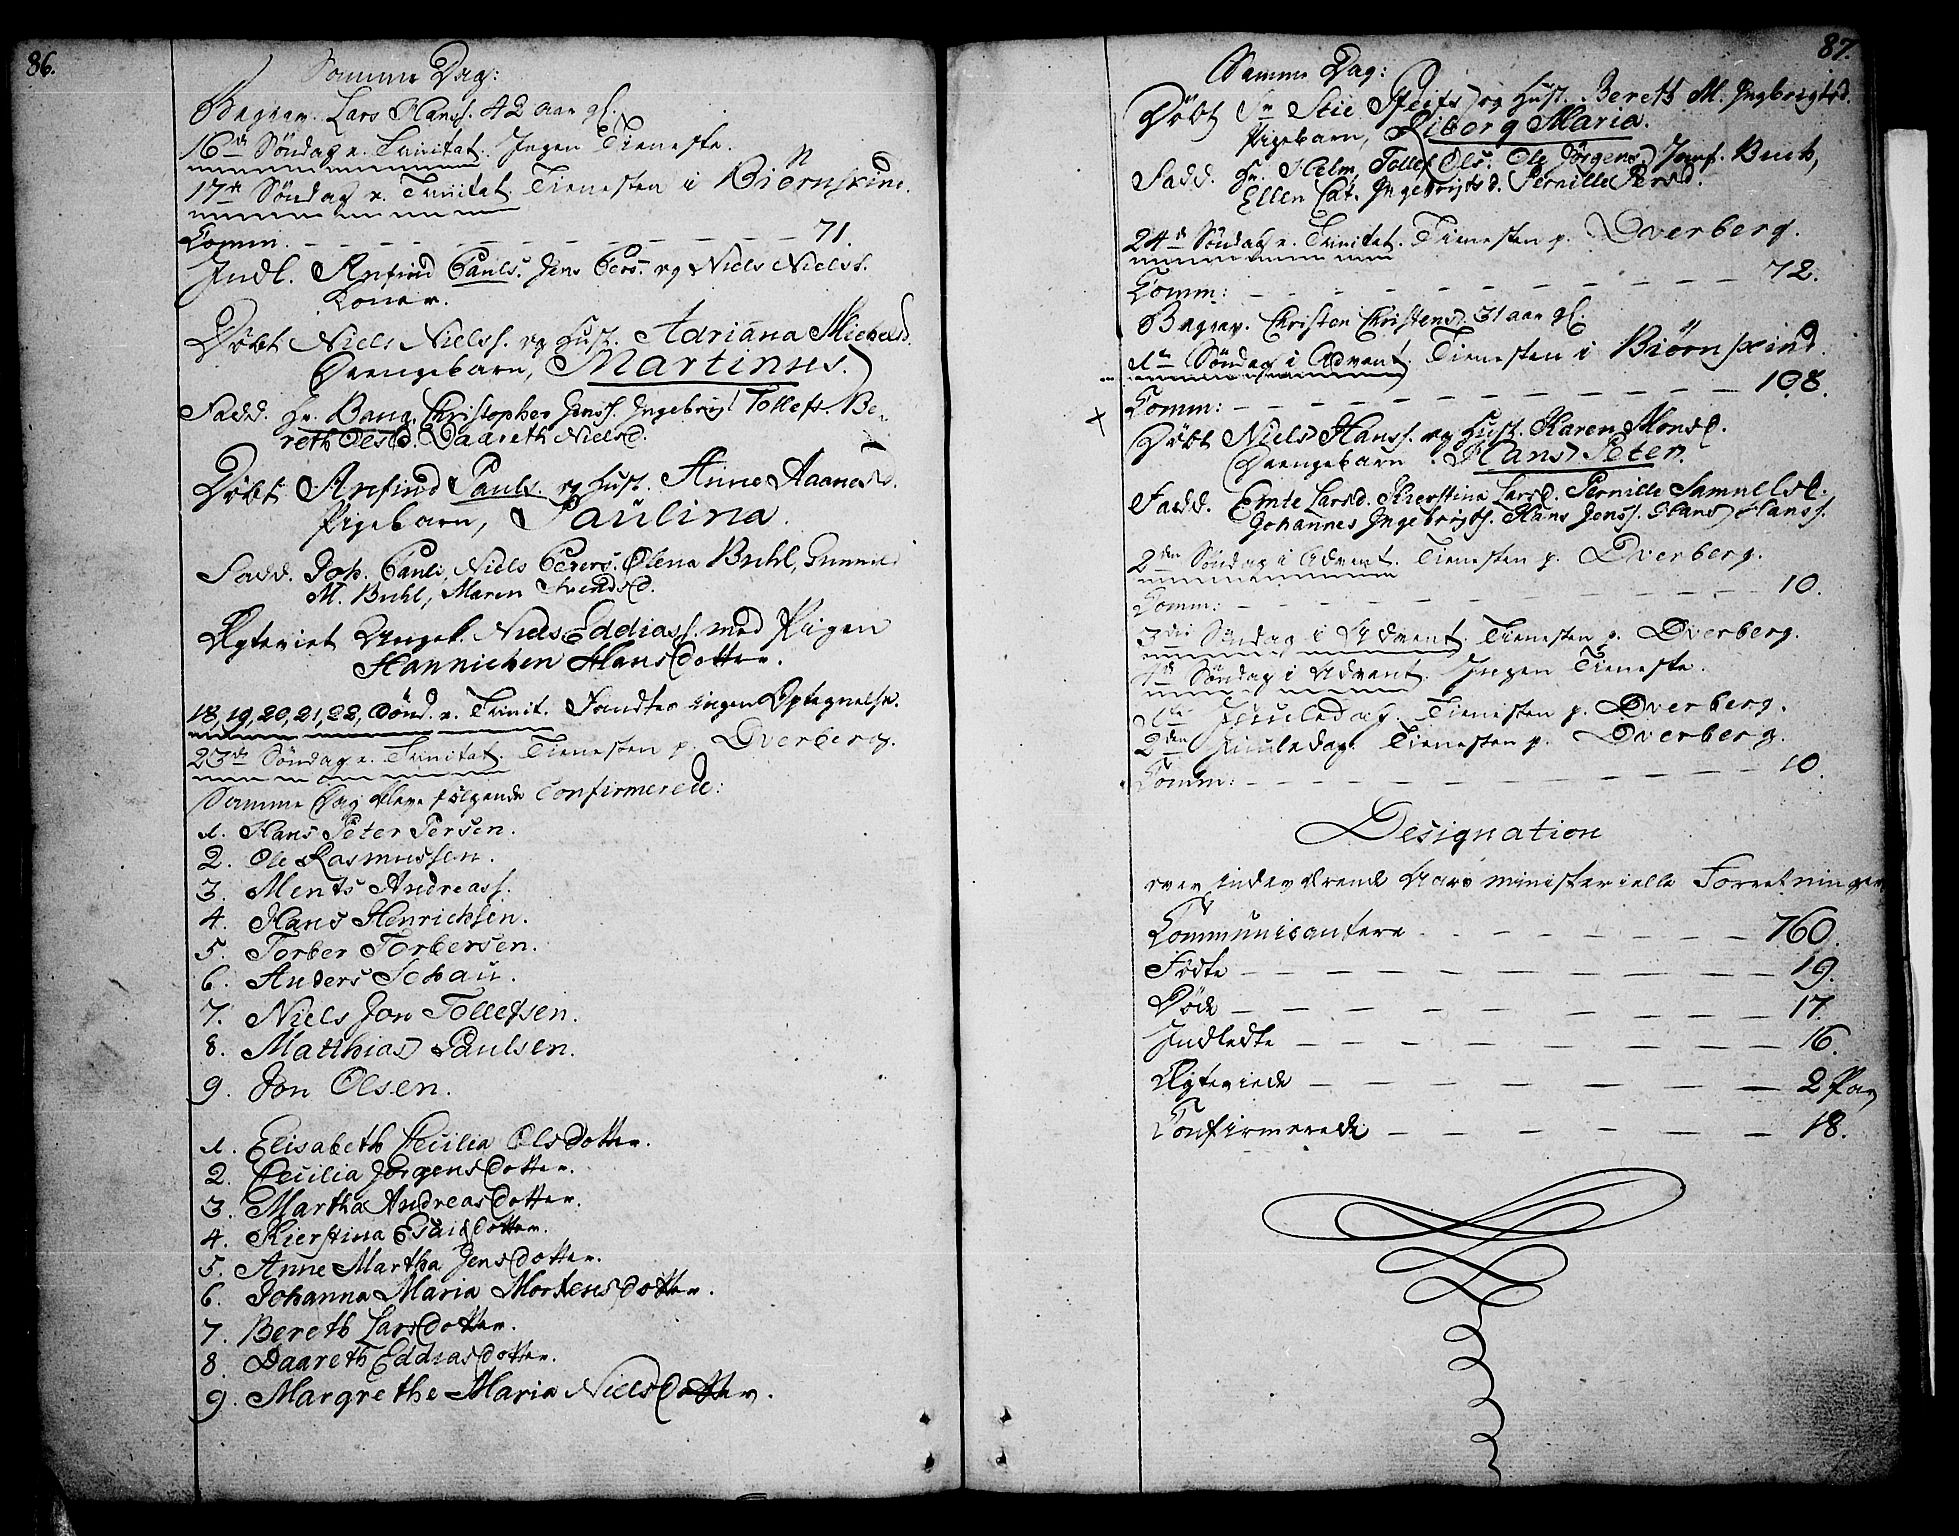 86.
Samme Dag:
Begrav. Lars Hanss. 42 aar gl.
16de Søndag e. Trinitat. Ingen Tieneste.
17de Søndag e. Trinitat. Tienesten i Biørnskind.
Comm. — — — — — — 71.
Indl. Anfind Pauls. Jens Pers. og Niels Nielss.
Koner.
Døbt Niels Nielss. og Hust. Adriana Michelsd.
Drengebarn, Martinus.
Fadd. Hr. Bang, Christopher Jenss. Ingebrigt Tollefs. Be-
reth Olsd. Daareth Nielsd.
Døbt Anfind Pauls. og Hust. Anne Haanesd.
Pigebarn, Paulina.
Fadd. Joh. Pauls, Niels Pevers. Olena Buhl, Gunnil
M. Buhl, Maren Svendsd.
Ægteviet Ungk. Niels Eddiass. med Pigen
Hannichen Hansdotter.
18, 19, 20, 21, 22, Sønd. e. Trinit. Fandtes ingen Optegnelse.
23de Søndag e. Trinitat. Tienesten p. Dverberg.
Samme Dag bleve følgende Confirmerede:
1. Hans Peter Persen.
2. Ole Rasmussen.
3. Ments Andreass.
4. Hans Henrichsen.
5. Torber Torbersen.
6. Anders Schau.
7. Niels Jon Tollefsen.
8. Matthias Paulsen.
9. Jon Olsen.
1. Elisabeth Cecilia Olsdotter.
2. Cecilia Jørgensdotter.
3. Martha Andreasdotter.
4. Kierstina Esaisdotter.
5. Anne Martha Jensdotter.
6. Johanna Maria Mortensdotter.
7. Bereth Larsdotter.
8. Daareth Eddiasdotter.
9. Margrethe Maria Nielsdotter.
87.
Samme Dag:
Døbt Sr Stie og Hust. Bereth M. Ingbrigtsd.
Pigebarn, Liborg Maria.
Fadd. Hr. Holm, Tollef Ols. Ole Jørgens. Jomf. Buch,
Ellen Cat. Ingebrigtsd. Pernille Persd.
24de Søndag e. Trinitat. Tienesten p. Dverberg.
Comm: — — — — — — 72.
Begrav. Christen Christens. 31 aar gl.
1te Søndag i Advent. Tienesten i Biørnskind.
Comm: — — — — — — 108.
Døbt Niels Hanss. og Hust. Karen Monsd.
Drengebarn Hans Peter.
Fadd. Emte Larsd. Kierstina Larsd. Pernille Samuelsd.
Johannes Ingebrigts. Hans Jenss. Hans Hanss.
2den Søndag i Advent. Tienesten p. Dverberg.
Comm: — — — — — — 10.
3die Søndag i Advent. Tienesten p. Dverberg.
4de Søndag i Advent. Ingen Tieneste.
1te Juuledag. Tienesten p. Dverberg.
2den Juuledag. Tienesten p. Dverberg.
Comm: — — — — — — 10.
Designation
over indeværende Aars ministerielle Forretninger
Communicantere — — — — — 760.
Fødte — — — — — — 19.
Døde — — — — — — 17.
Indledte — — — — — — 16.
Ægteviede — — — — — — 2 Par
Confirmerede — — — — — 18.